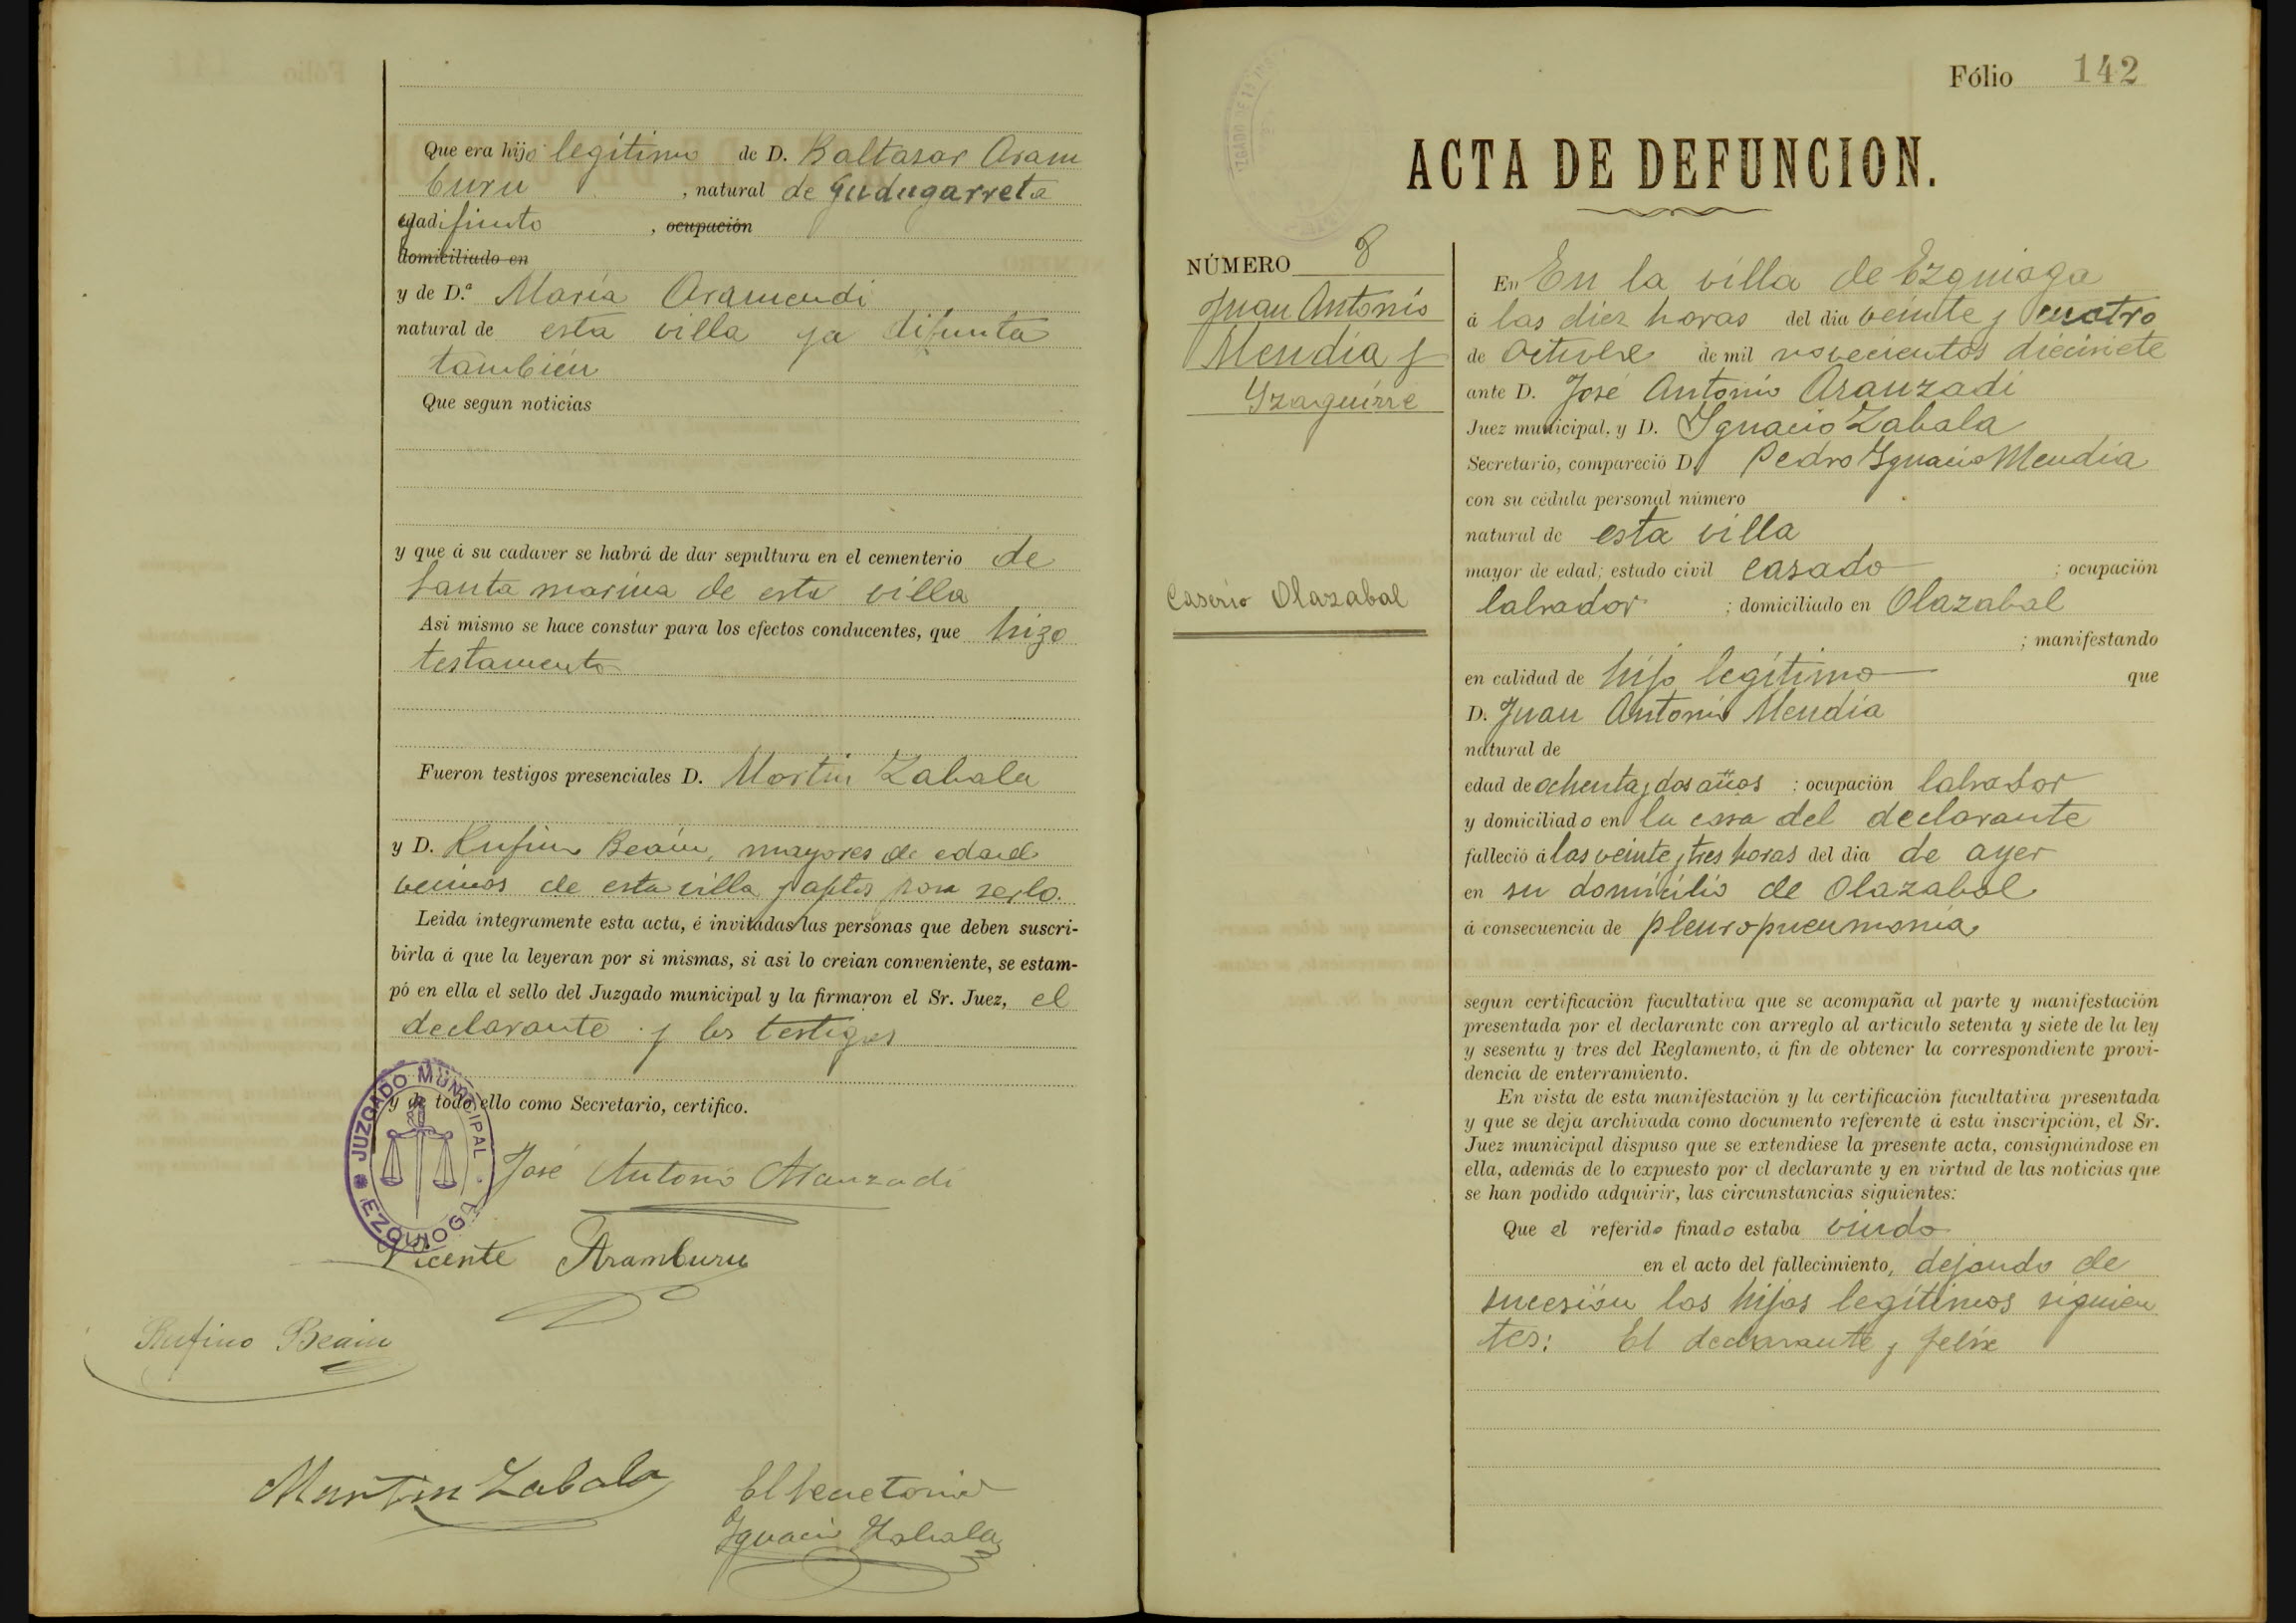 Que era hijo legítimo de D. Baltasar Aram
buru , natural de Gudugarreta
edad difunto , ocupación
domiciliado en
y de D.ª María Aramendi
natural de esta villa ya difunta
también
Que segun noticias
y que á su cadaver se habrá de dar sepultura en el cementerio de
Santa marina de esta villa
Asi mismo se hace constar para los efectos conducentes, que hizo
testamento
Fueron testigos presenciales D. Martin Zabala
y D. Rufino Beáin, mayores de edad
vecinos de esta villa y aptos para serlo.
Leida íntegramente esta acta, é invitadas las personas que deben suscri-
birla á que la leyeran por si mismas, si asi lo creian conveniente, se estam-
pó en ella el sello del Juzgado municipal y la firmaron el Sr. Juez, el
declarante y los testigos
y de todo ello como Secretario, certifico.
JUZGADO MUNICIPAL
EZQUIOGA
José Antonio Aranzadi
Vicente Aramburu
Rufino Beain
Martin Zabala
El Secretario
Ignacio Zabala
Fólio 142
ACTA DE DEFUNCION.
NÚMERO 8
Juan Antonio
Mendia y
Yzaguirre
Caserio Olazabal
En En la villa de Ezquioga
á las diez horas del dia veinte y cuatro
de Octubre de mil novecientos diecisiete
ante D. José Antonio Aranzadi
Juez municipal, y D. Ygnacio Zabala
Secretario, compareció D. Pedro Ygnacio Mendia
con su cédula personal número
natural de esta villa
mayor de edad; estado civil casado ; ocupación
labrador ; domiciliado en Olazabal
; manifestando
en calidad de hijo legítimo que
D. Juan Antonio Mendia
natural de
edad de ochenta y dos años ; ocupación labrador
y domiciliado en la casa del declarante
falleció á las veinte y tres horas del dia de ayer
en su domicilio de Olazabal
á consecuencia de pleuropneumonia
segun certificación facultativa que se acompaña al parte y manifestación
presentada por el declarante con arreglo al artículo setenta y siete de la ley
y sesenta y tres del Reglamento, á fin de obtener la correspondiente provi-
dencia de enterramiento.
En vista de esta manifestación y la certificación facultativa presentada
y que se deja archivada como documento referente á esta inscripción, el Sr.
Juez municipal dispuso que se extendiese la presente acta, consignándose en
ella, además de lo expuesto por el declarante y en virtud de las noticias que
se han podido adquirir, las circunstancias siguientes:
Que el referido finado estaba viudo
en el acto del fallecimiento, dejando de
sucesión los hijos legítimos siguien
tes: El declarante y Felix